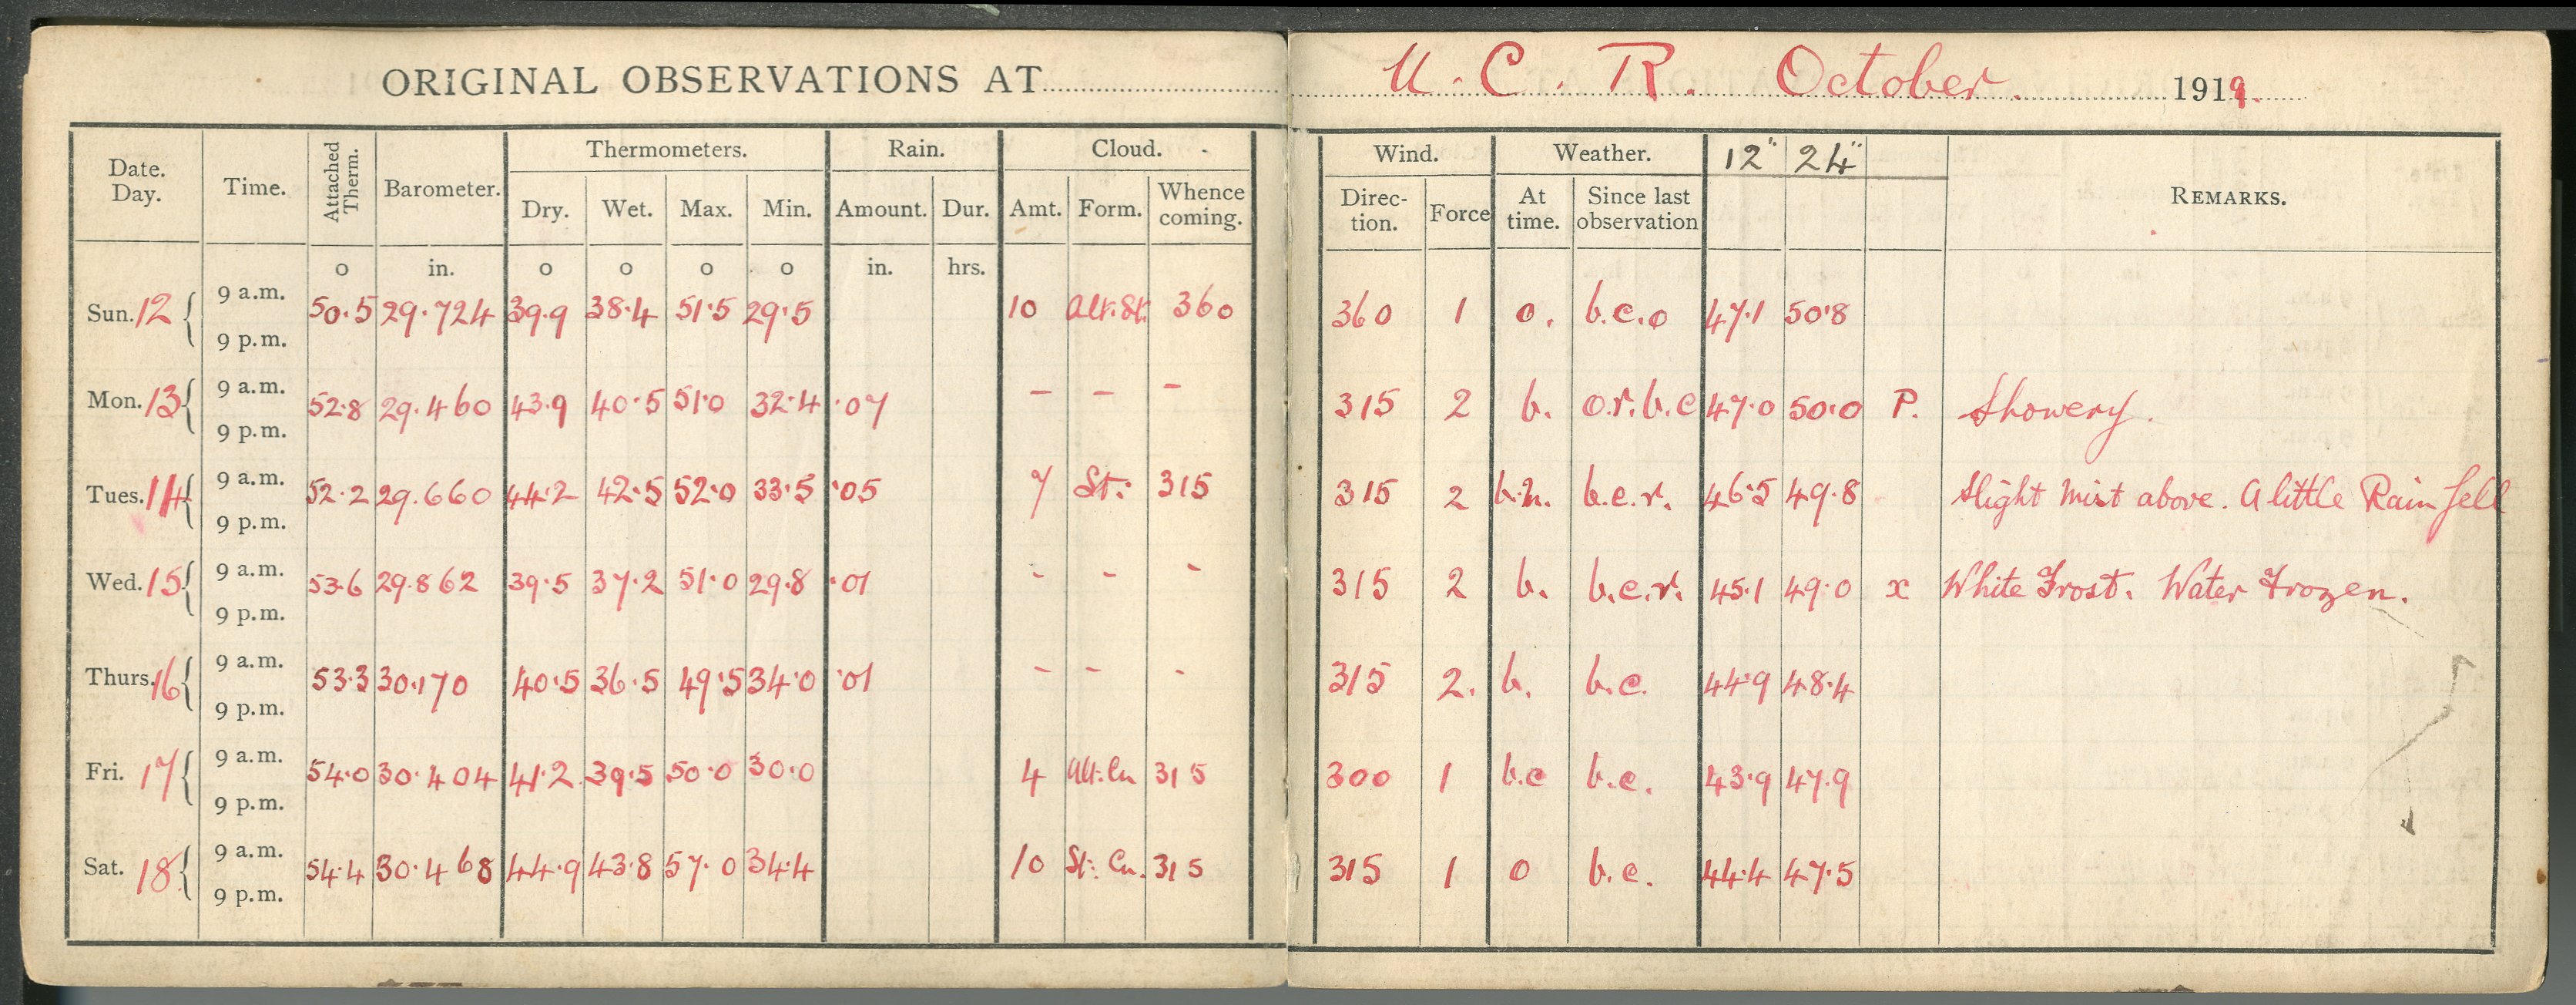 ORIGINAL OBSERVATIONS AT U. C. R. October. 1919.
Date. Day. Time. Attached Therm. Barometer. Thermometers. Rain. Cloud. Wind. Weather. 12" 24" REMARKS.
Dry. Wet. Max. Min. Amount. Dur. Amt. Form. Whence coming. Direc- tion. Force At time. Since last observation
o in. o o o o in. hrs.
Sun. 12 { 9 a.m. 50.5 29.724 39.9 38.4 51.5 29.5 10 Alt. St. 360 360 1 o. b.c.o 47.1 50.8
9 p.m.
Mon. 13 { 9 a.m. 52.8 29.460 43.9 40.5 51.0 32.4 .07 – – – 315 2 b. o.r.b.c 47.0 50.0 P. Showery.
9 p.m.
Tues. 14 { 9 a.m. 52.2 29.660 44.2 42.5 52.0 33.5 .05 7 St: 315 315 2 b.c.r. 46.5 49.8 Slight Mist above. A little Rain fell
9 p.m.
Wed. 15 { 9 a.m. 53.6 29.862 39.5 37.2 51.0 29.8 .01 - - - 315 2 b. b.c.r. 45.1 49.0 x White Frost. Water Frozen.
9 p.m.
Thurs. 16 { 9 a.m. 53.3 30.170 40.5 36.5 49.5 34.0 .01 - - - 315 2. b. b.c. 44.9 48.4
9 p.m.
Fri. 17 { 9 a.m. 54.0 30.404 41.2 39.5 50.0 30.0 4 Alt. Cu 315 300 1 b.c b.c. 43.9 47.9
9 p.m.
Sat. 18 { 9 a.m. 54.4 30.468 44.9 43.8 57.0 34.4 10 St. Cu. 315 315 1 o b.c. 44.4 47.5
9 p.m.